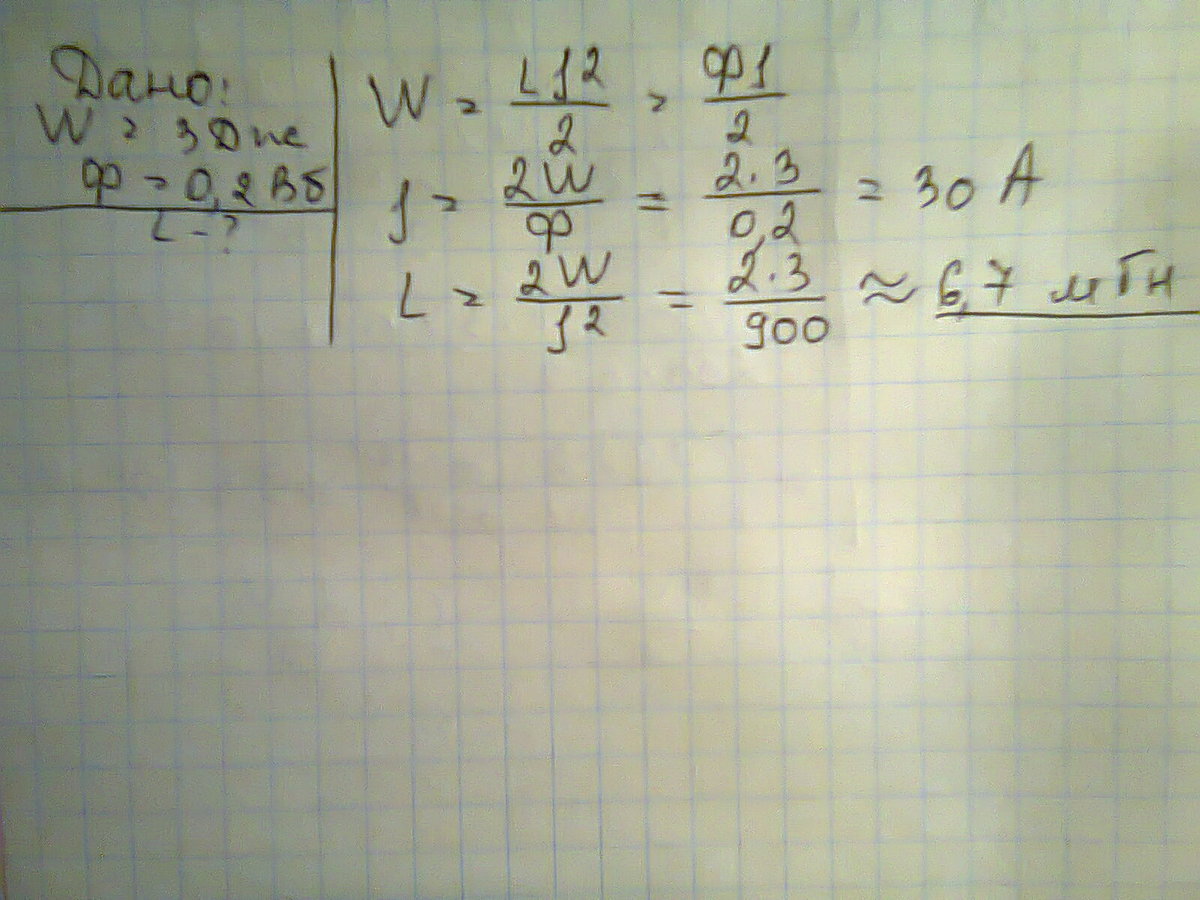 Дано:
W = 3 Дж
Ф = 0,2 Вб
L - ?
W = LI²/2 = ФI/2
I = 2W/Ф = 2·3/0,2 = 30 А
L = 2W/I² = 2·3/900 ≈ 6,7 мГн